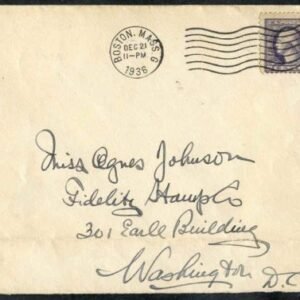 BOSTON, MASS. 6
DEC 21
11-PM
1936
Miss Agnes Johnson
Fidelity Stamp Co
301 Earle Building
Washington D.C